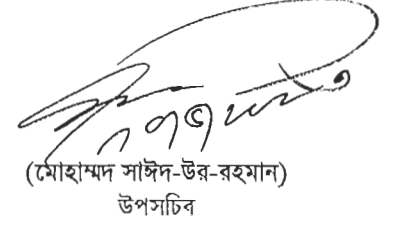 (মোহাম্মদ সাঈদ-উর-রহমান)
উপসচিব